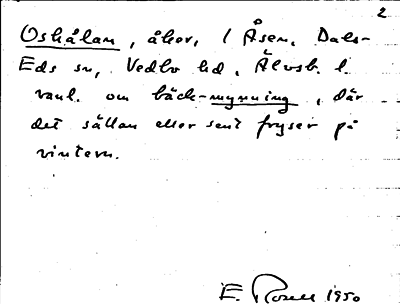 2
Oshålan, åker, / Åsen, Dals-
Eds sn, Vedbo hd, Älvsb. l.
vanl. om bäck-mynning, där
det sällan eller sent fryser på
vintern.
E. Rosell 1950